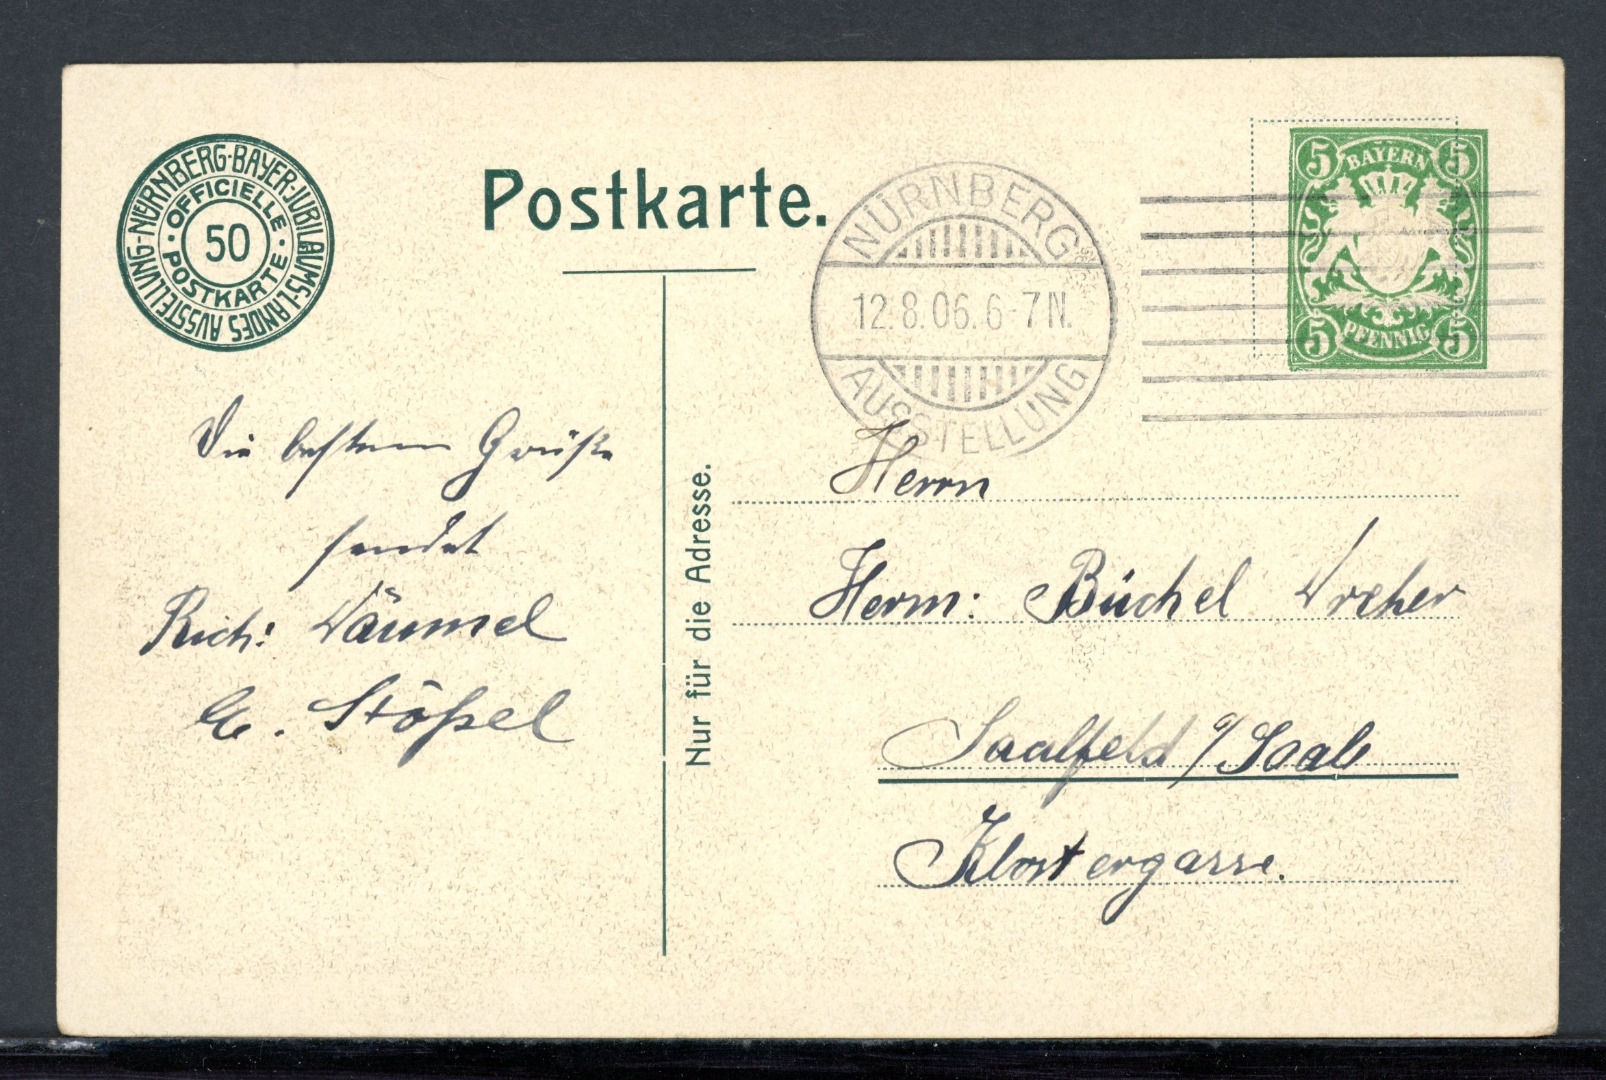 NÜRNBERG-BAYER-JUBILÄUMS-LANDES AUSSTELLUNG-
• OFFICIELLE • POSTKARTE
50
Postkarte.
NÜRNBERG
12.8.06.6-7N.
AUSSTELLUNG
BAYERN
5 5
5 5
PFENNIG
Die besten Grüße
sendet
Rich:
E. Stößel
Nur für die Adresse.
Herrn
Herm: Büchel Dreher
Saalfeld a/Saale
Klostergasse.